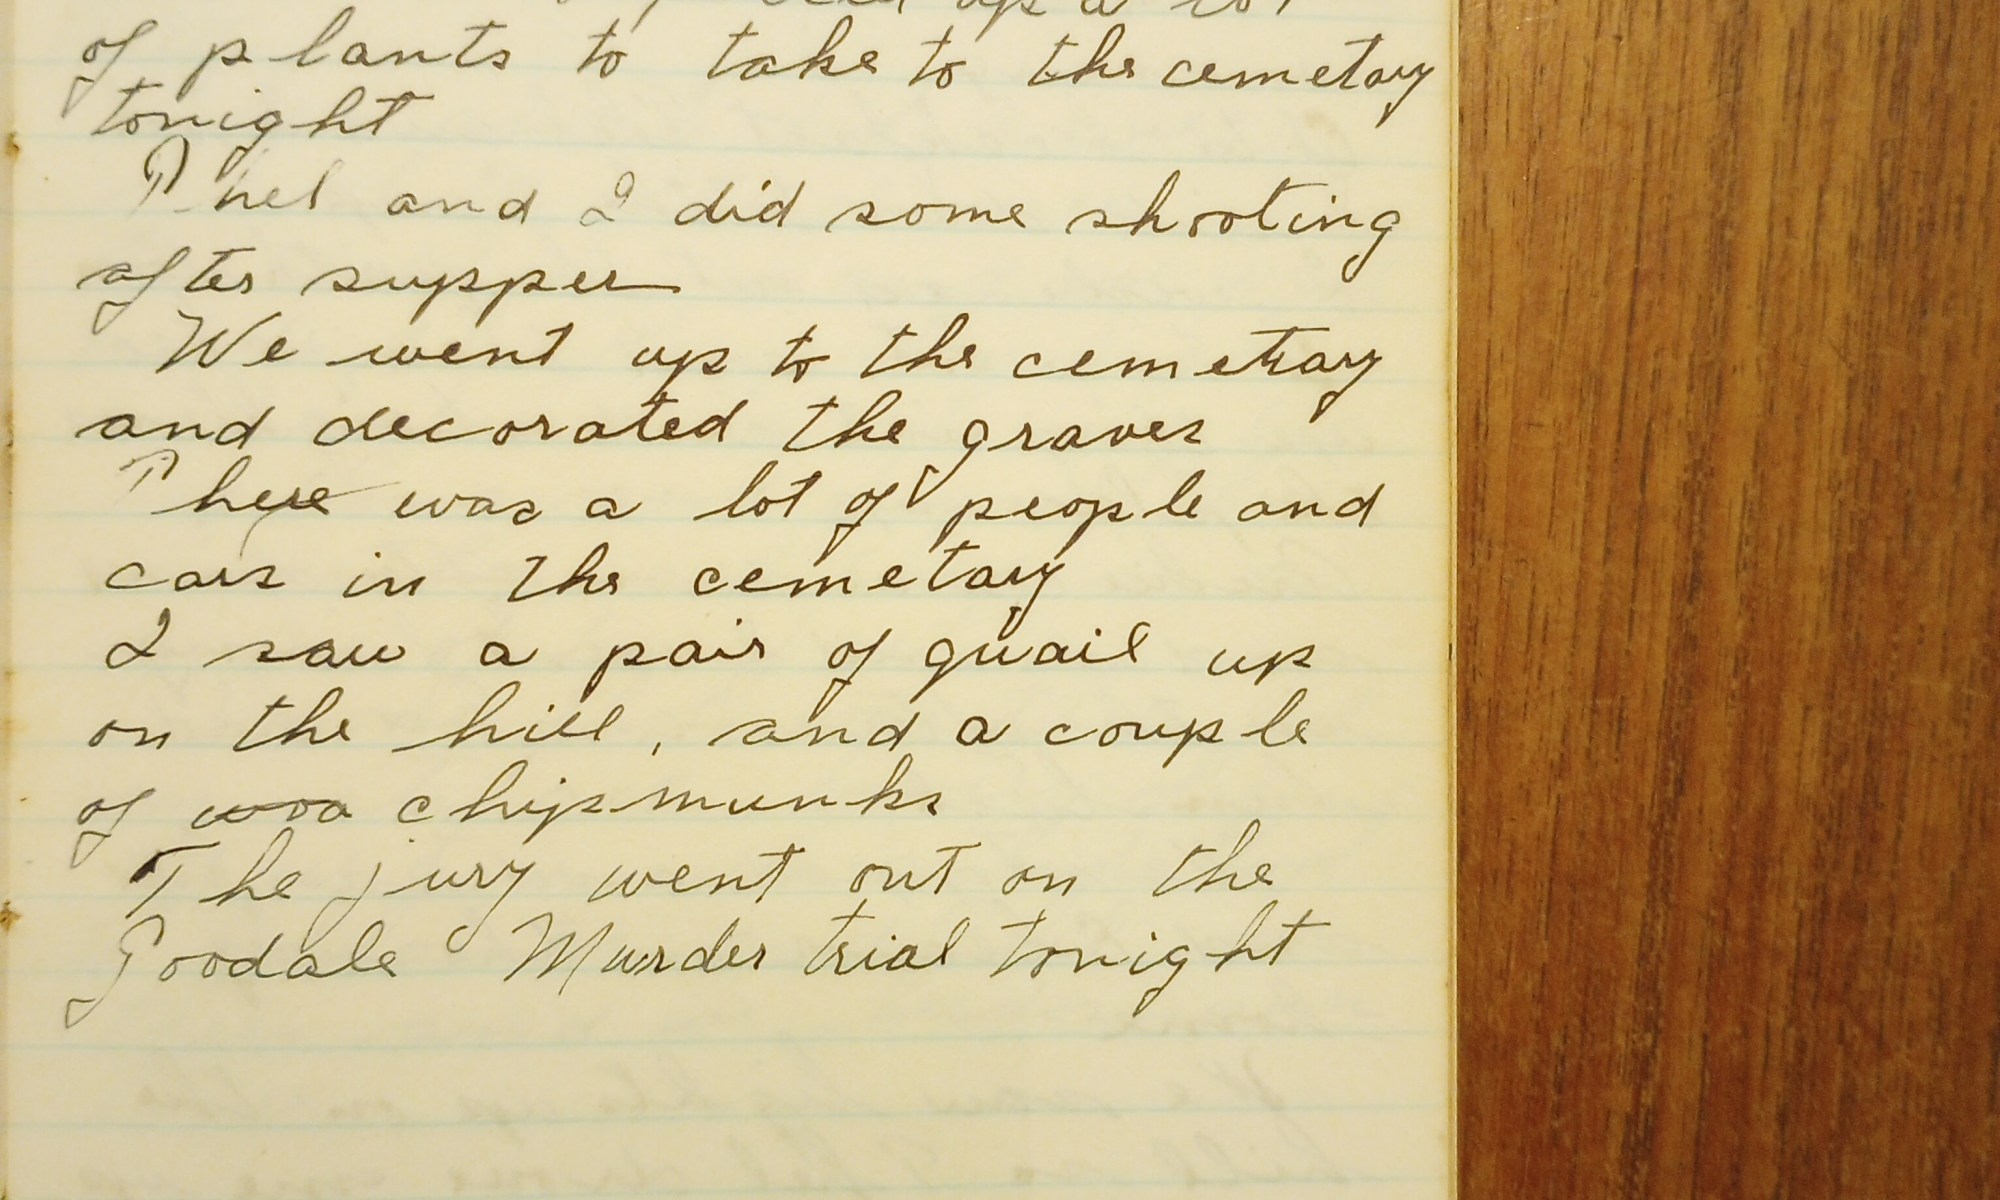 up a lot
of plants to take to the cemetary
tonight
Phel and I did some shooting
after supper
We went up to the cemetray
and decorated the graves
There was a lot of people and
cars in the cemetary
I saw a pair of quail up
on the hill, and a couple
of woo chipmunks
The jury went out on the
Goodale Murder trial tonight